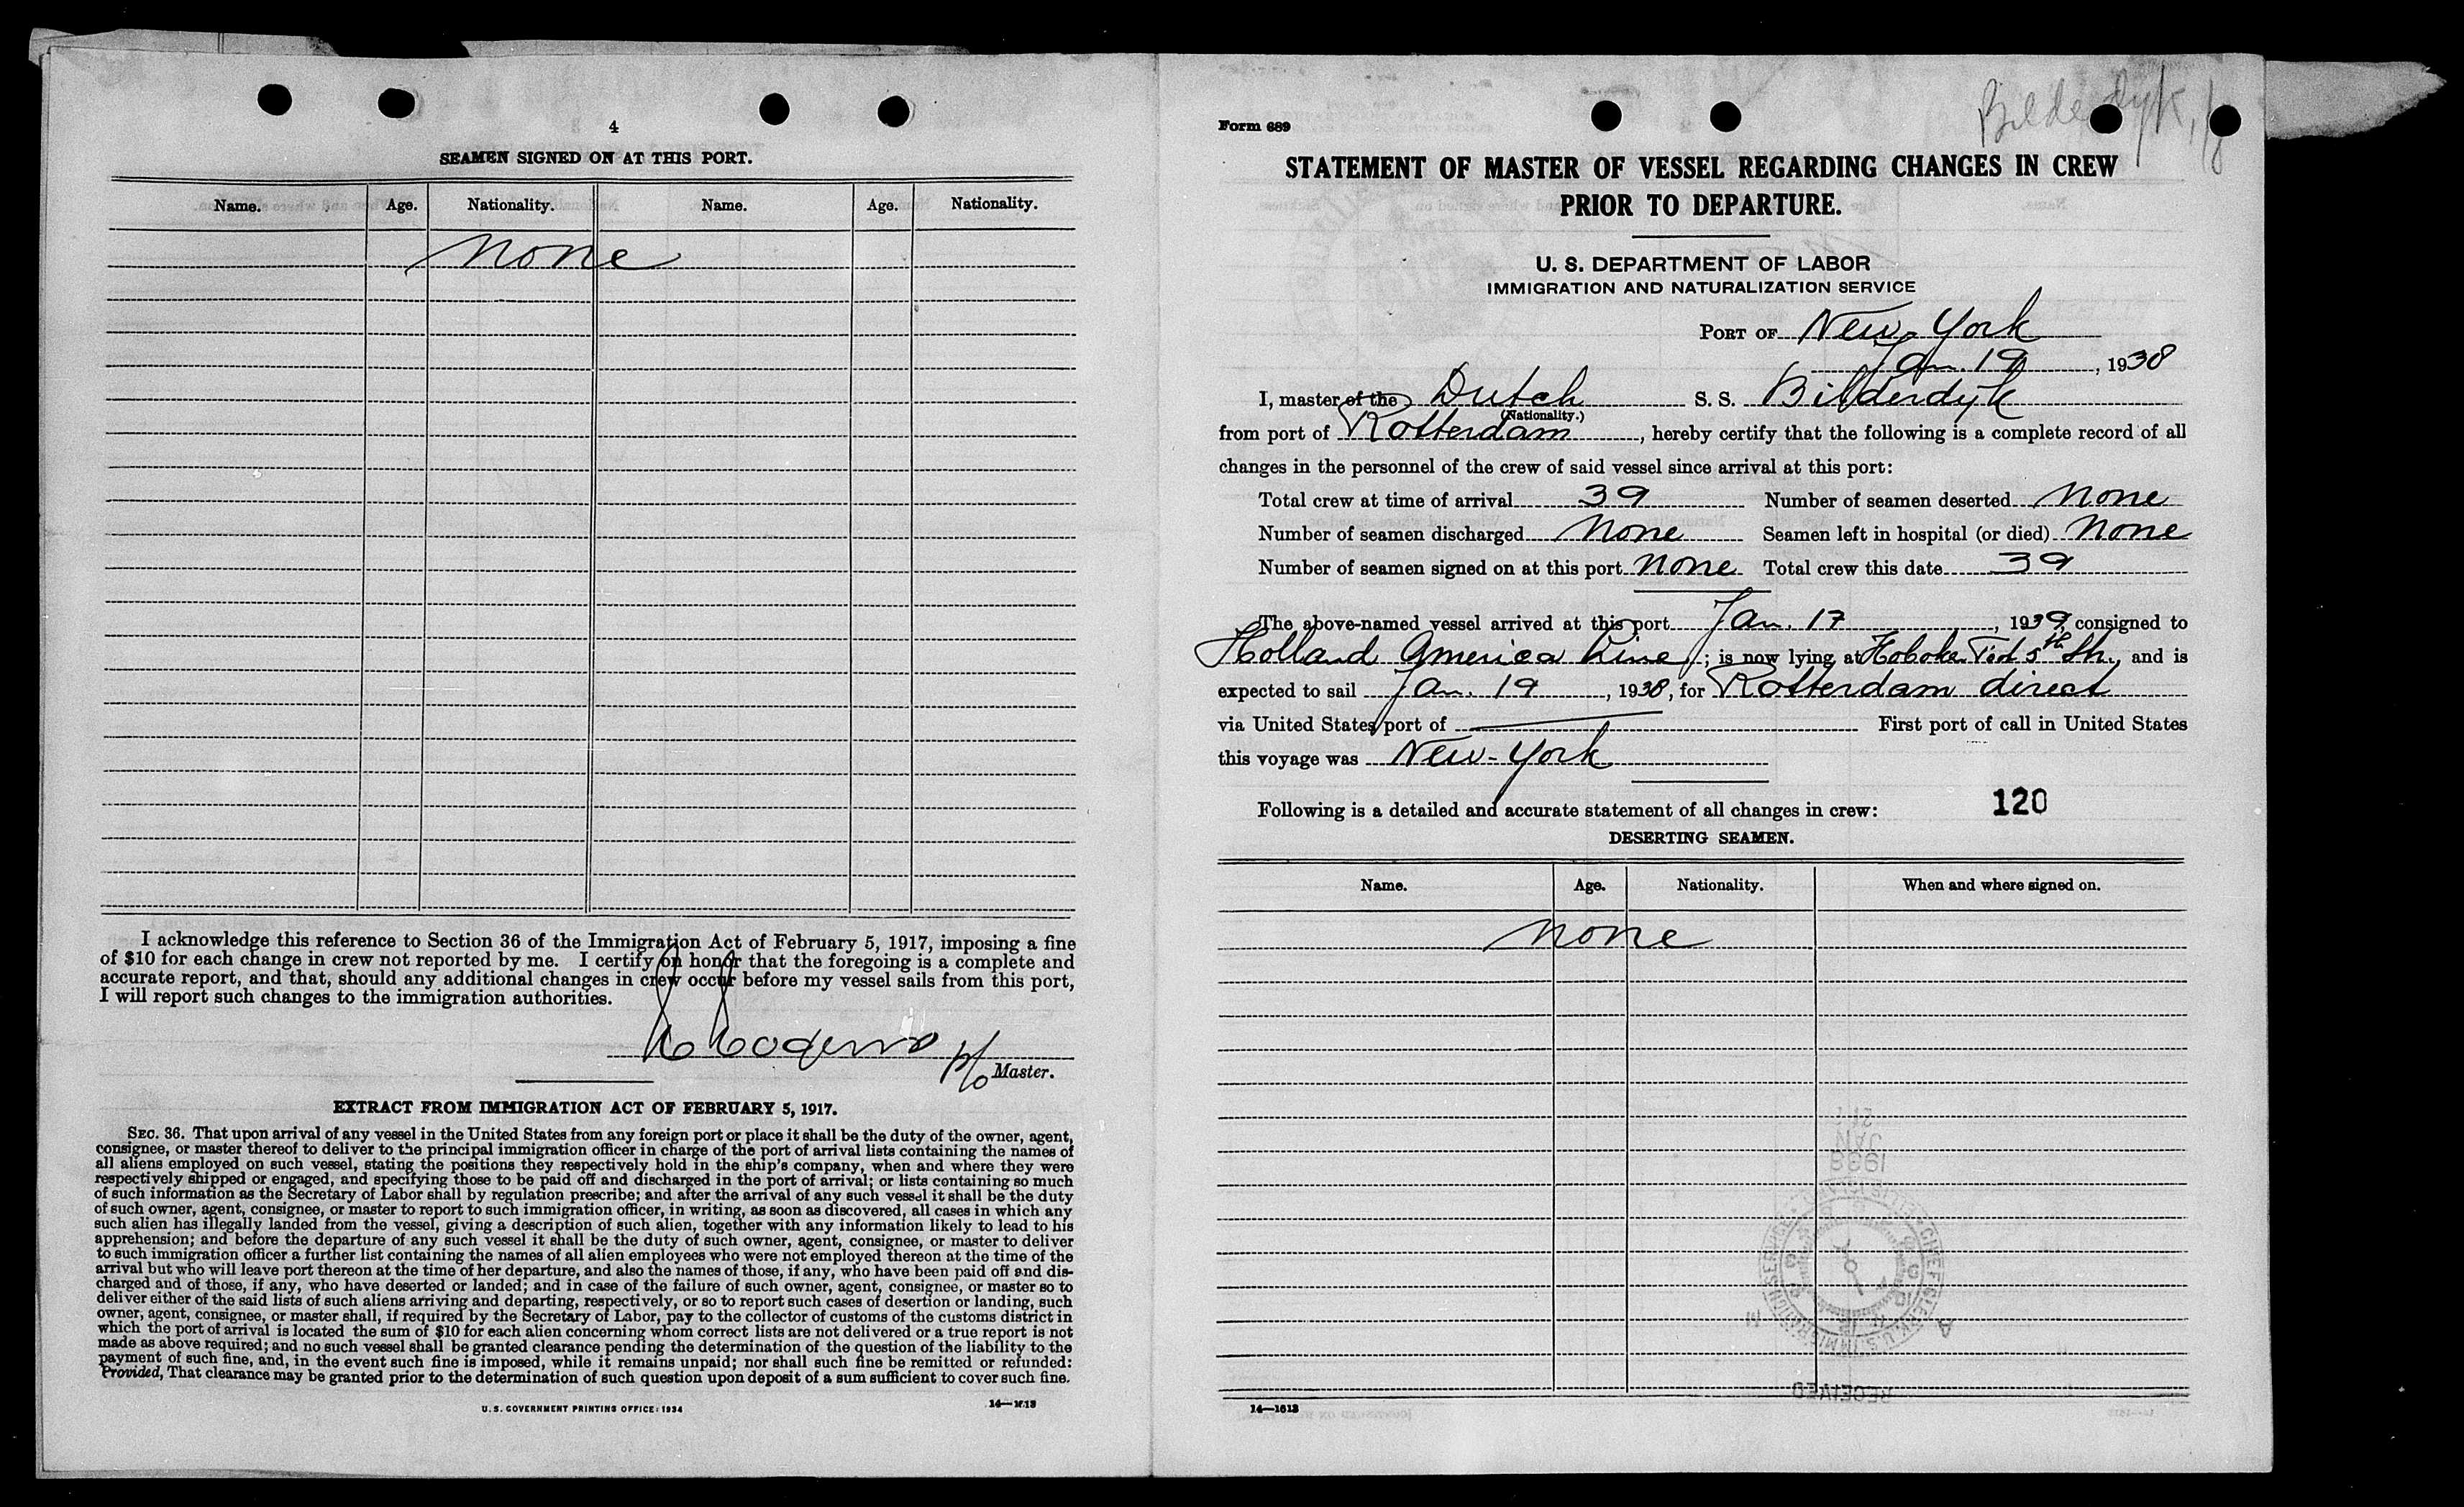 4
SEAMEN SIGNED ON AT THIS PORT.
Name. Age. Nationality. Name. Age. Nationality.
None
I acknowledge this reference to Section 36 of the Immigration Act of February 5, 1917, imposing a fine
of $10 for each change in crew not reported by me. I certify on honor that the foregoing is a complete and
accurate report, and that, should any additional changes in crew occur before my vessel sails from this port,
I will report such changes to the immigration authorities.
Master.
EXTRACT FROM IMMIGRATION ACT OF FEBRUARY 5, 1917.
SEC. 36. That upon arrival of any vessel in the United States from any foreign port or place it shall be the duty of the owner, agent,
consignee, or master thereof to deliver to the principal immigration officer in charge of the port of arrival lists containing the names of
all aliens employed on such vessel, stating the positions they respectively hold in the ship's company, when and where they were
respectively shipped or engaged, and specifying those to be paid off and discharged in the port of arrival; or lists containing so much
of such information as the Secretary of Labor shall by regulation prescribe; and after the arrival of any such vessel it shall be the duty
of such owner, agent, consignee, or master to report to such immigration officer, in writing, as soon as discovered, all cases in which any
such alien has illegally landed from the vessel, giving a description of such alien, together with any information likely to lead to his
apprehension; and before the departure of any such vessel it shall be the duty of such owner, agent, consignee, or master to deliver
to such immigration officer a further list containing the names of all alien employees who were not employed thereon at the time of the
arrival but who will leave port thereon at the time of her departure, and also the names of those, if any, who have been paid off and dis-
charged and of those, if any, who have deserted or landed; and in case of the failure of such owner, agent, consignee, or master so to
deliver either of the said lists of such aliens arriving and departing, respectively, or so to report such cases of desertion or landing, such
owner, agent, consignee, or master shall, if required by the Secretary of Labor, pay to the collector of customs of the customs district in
which the port of arrival is located the sum of $10 for each alien concerning whom correct lists are not delivered or a true report is not
made as above required; and no such vessel shall be granted clearance pending the determination of the question of the liability to the
payment of such fine, and, in the event such fine is imposed, while it remains unpaid; nor shall such fine be remitted or refunded:
Provided, That clearance may be granted prior to the determination of such question upon deposit of a sum sufficient to cover such fine.
U. S. GOVERNMENT PRINTING OFFICE: 1934 14—1613
Bilderdyk,
Form 689
STATEMENT OF MASTER OF VESSEL REGARDING CHANGES IN CREW
PRIOR TO DEPARTURE.
U. S. DEPARTMENT OF LABOR
IMMIGRATION AND NATURALIZATION SERVICE
PORT OF New-York
Jan. 19, 1938
I, master of the Dutch S. S. Bilderdyk
(Nationality.)
from port of Rotterdam, hereby certify that the following is a complete record of all
changes in the personnel of the crew of said vessel since arrival at this port:
Total crew at time of arrival 39 Number of seamen deserted None
Number of seamen discharged None Seamen left in hospital (or died) None
Number of seamen signed on at this port None Total crew this date 39
The above-named vessel arrived at this port Jan. 17, 1939, consigned to
Holland America Line; is now lying at Hoboken 5th Str., and is
expected to sail Jan. 19, 1938, for Rotterdam direct
via United States port of — First port of call in United States
this voyage was New-York
Following is a detailed and accurate statement of all changes in crew: 120
DESERTING SEAMEN.
Name. Age. Nationality. When and where signed on.
None
14—1613